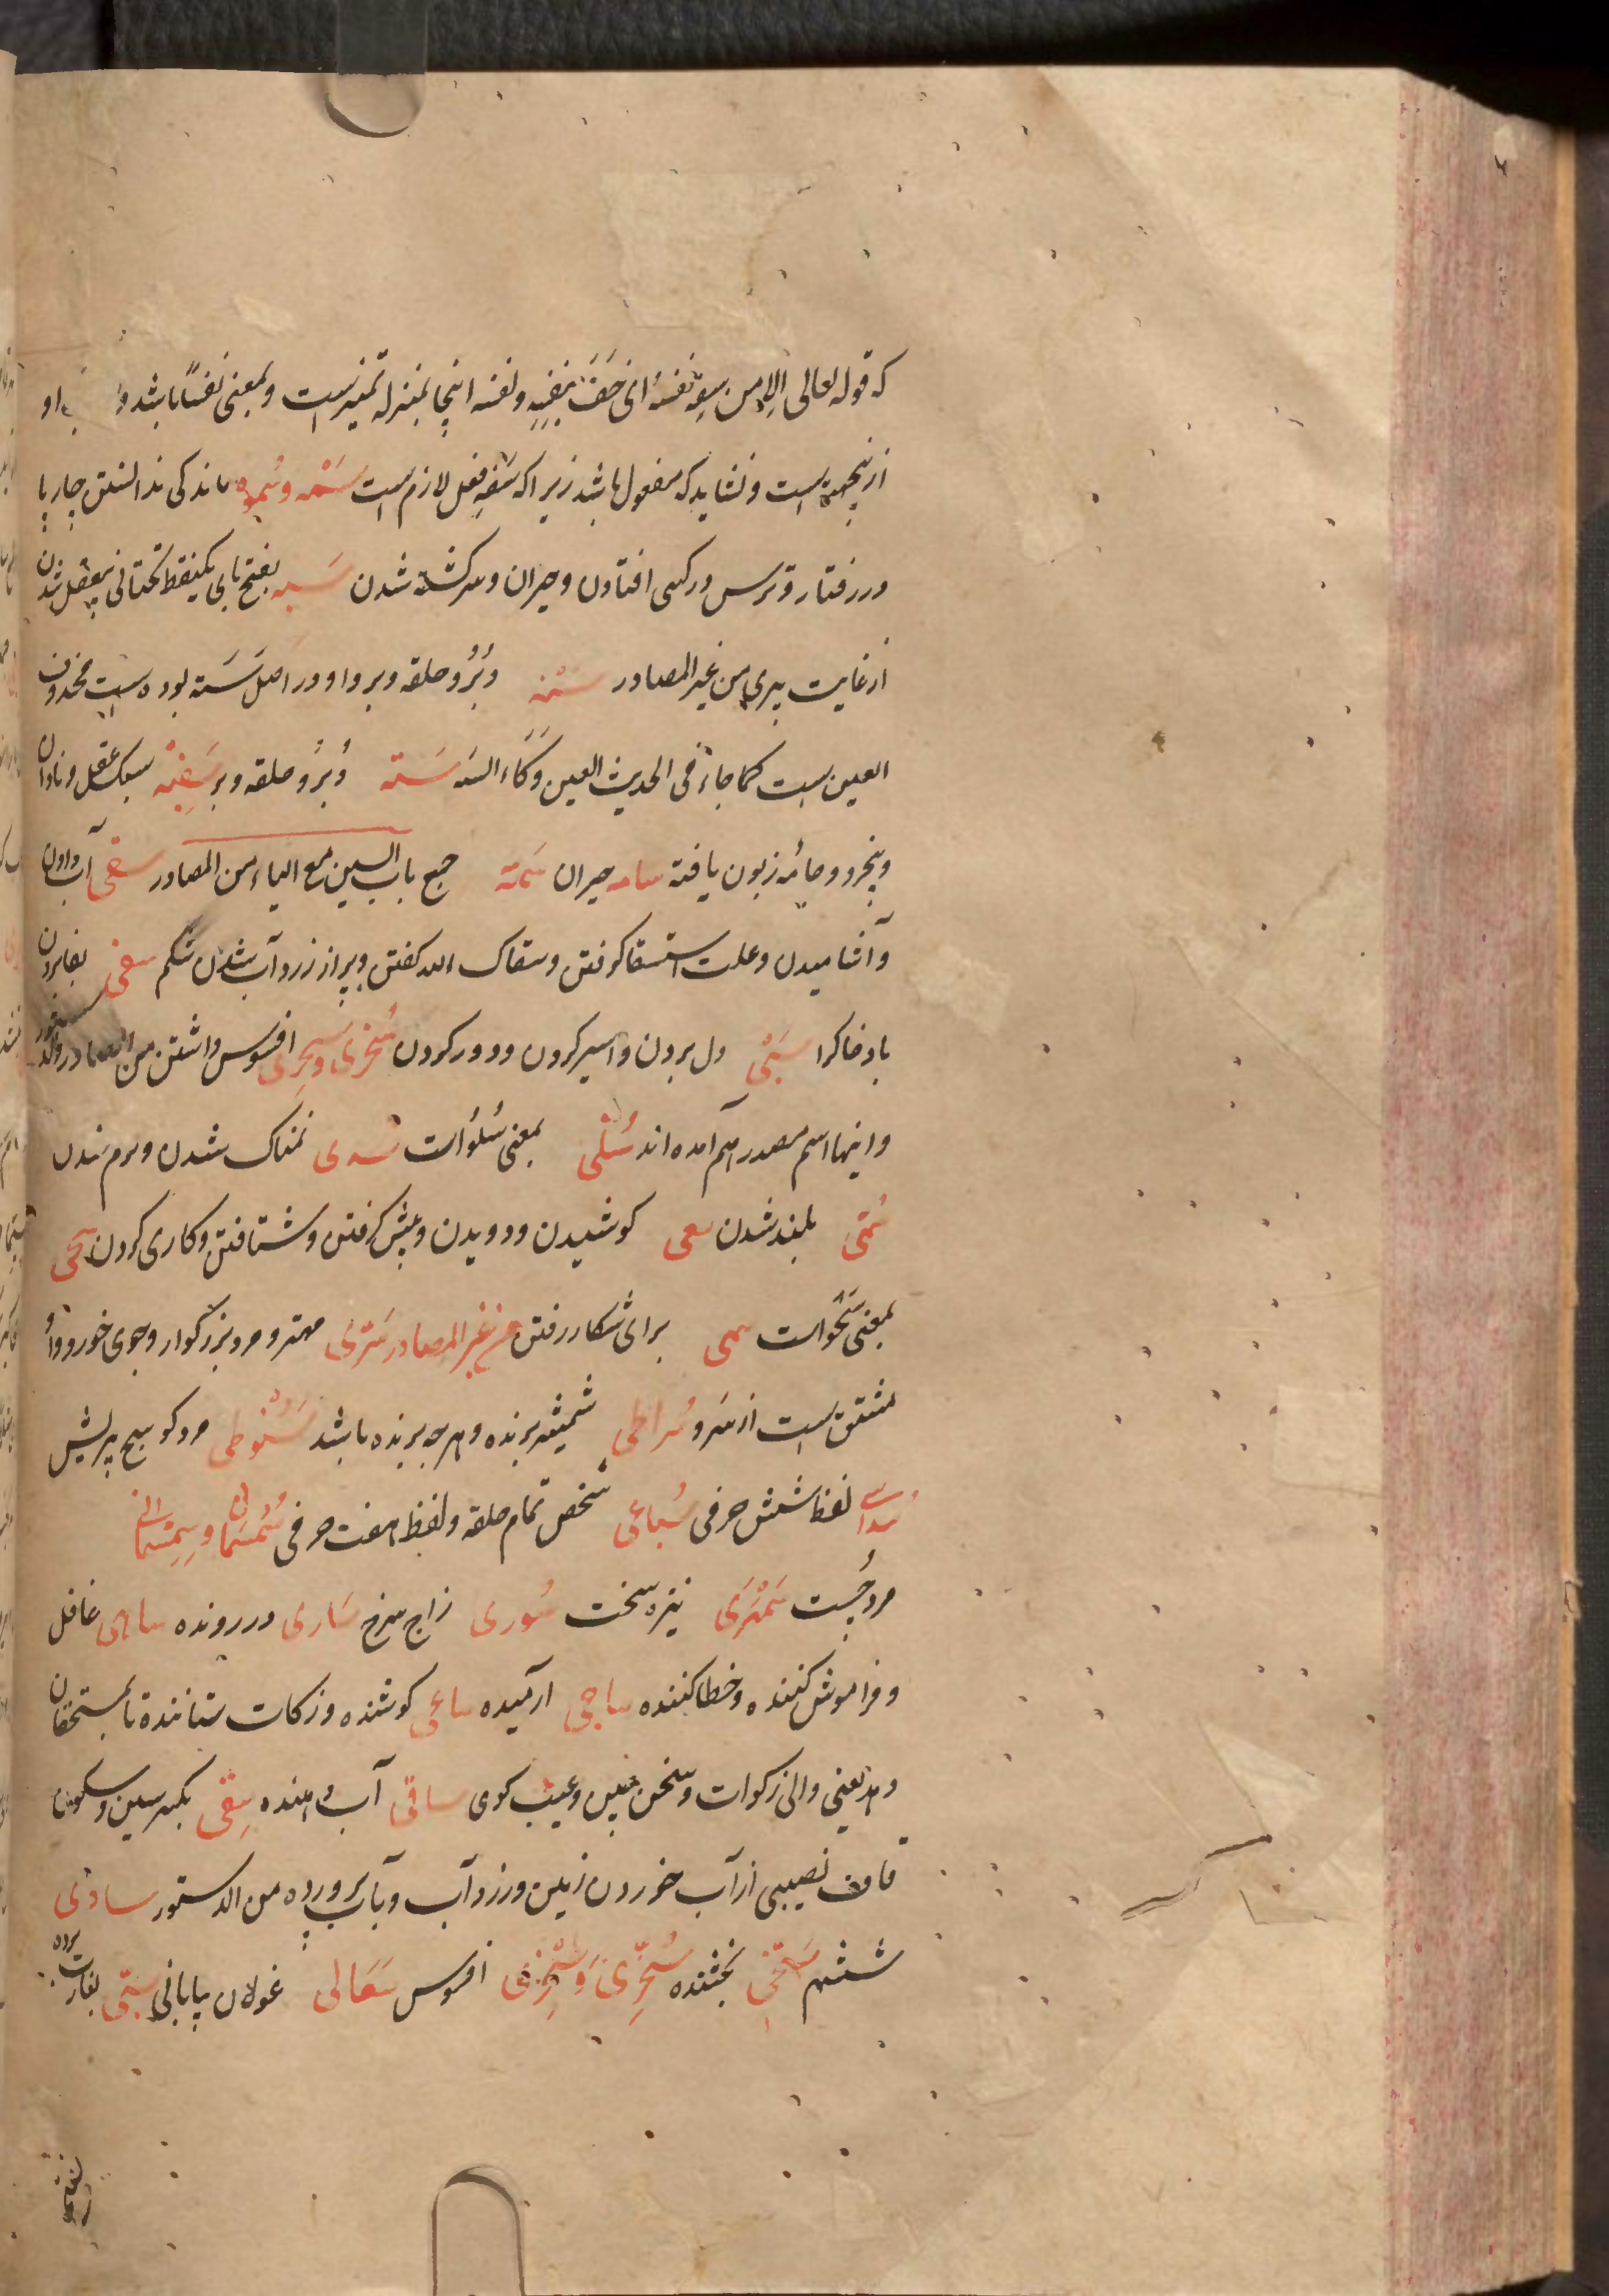 که قوله تعالی الا من سفه نفسه ای خف نفسه ونفسه اینجا بمنزله تمیزست وبمعنی نفسًا باشد و او
ازینجهة است ونشاید که مفعول باشد زیرا که سفه فعل لازم است سَمْه وسُموه ماندکی نداستن چارپا
در رفتار وترس در کسی افتادن وحیران وسرکشته شدن سَبه بفتح بای یکنقط تحتانی بیعقل شدن
از غایت پیری من غیر المصادر سَته دُبُر وحلقه دبر واو در اصل سَسته بوده است محذوف
العین است کما جاء فی الحدیث العین وکاء السه سَسته دُبُر وحلقه دبر سَفِیْه سبک عقل ونادان
وبیخرد وجامه زبون بافته سامه حیران سُمّه جمع باب السین مع الیاء من المصادر سقی آب دادن
وآشامیدن وعلت استسقا کوفتن وسقاک الله کفتن وپر از زرد آب شدن شکم سفی بغا بردن
باد خاک را سَبْی دل بردن واسیر کردن ودور کردن سُخری وسِخری افسوس داشتن من المصادر والدستور
واینها اسم مصدر هم آمده اند سُلی بمعنی سُلُوّ است سدی نمناک شدن ونرم شدن
سُمّی بلند شدن سعی کوشیدن ودویدن وپیش کرفتن وشتافتن وکاری کردن سَحی
بمعنی سَحْو است سمی برای شکار رفتن من غیر المصادر سَرِی مهتر ومرد بزرکوار وجوی خورد واو
مشتق است از سَرو سُراطی شمشیر برنده وهرچه برنده باشد سَنُوطی مرد کوسج بی ریش
سداسی لفظ شش حرفی سُباعی شخص تمام حلقه ولفظ هفت حرفی سُمسمانی وسِمسمانی
مرد چُست سَمْهَری نیزه سخت سُوری زاج سرخ سَاری در رونده ساهی غافل
وفراموش کننده وخطا کننده ساجی آرمیده ساعی کوشنده وزکات ستاننده تا بمستحقان
دهد یعنی والی زکوات وسخن چین وعیب کوی ساقی آب دهنده سِقی بکسر سین وسکون
قاف نصیبی از آب خوردن زمین وزرد آب وبآب پرورده من الدستور سادی
ششم سَخّی بخشنده سُخْرِی وَسِخْرِی افسوس سَعَالی غولان بیابانی سَبی بغارت برده